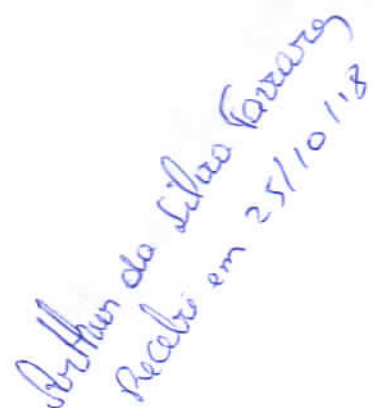 Arthur da Silva Tavares
Recebi em 25/10/18